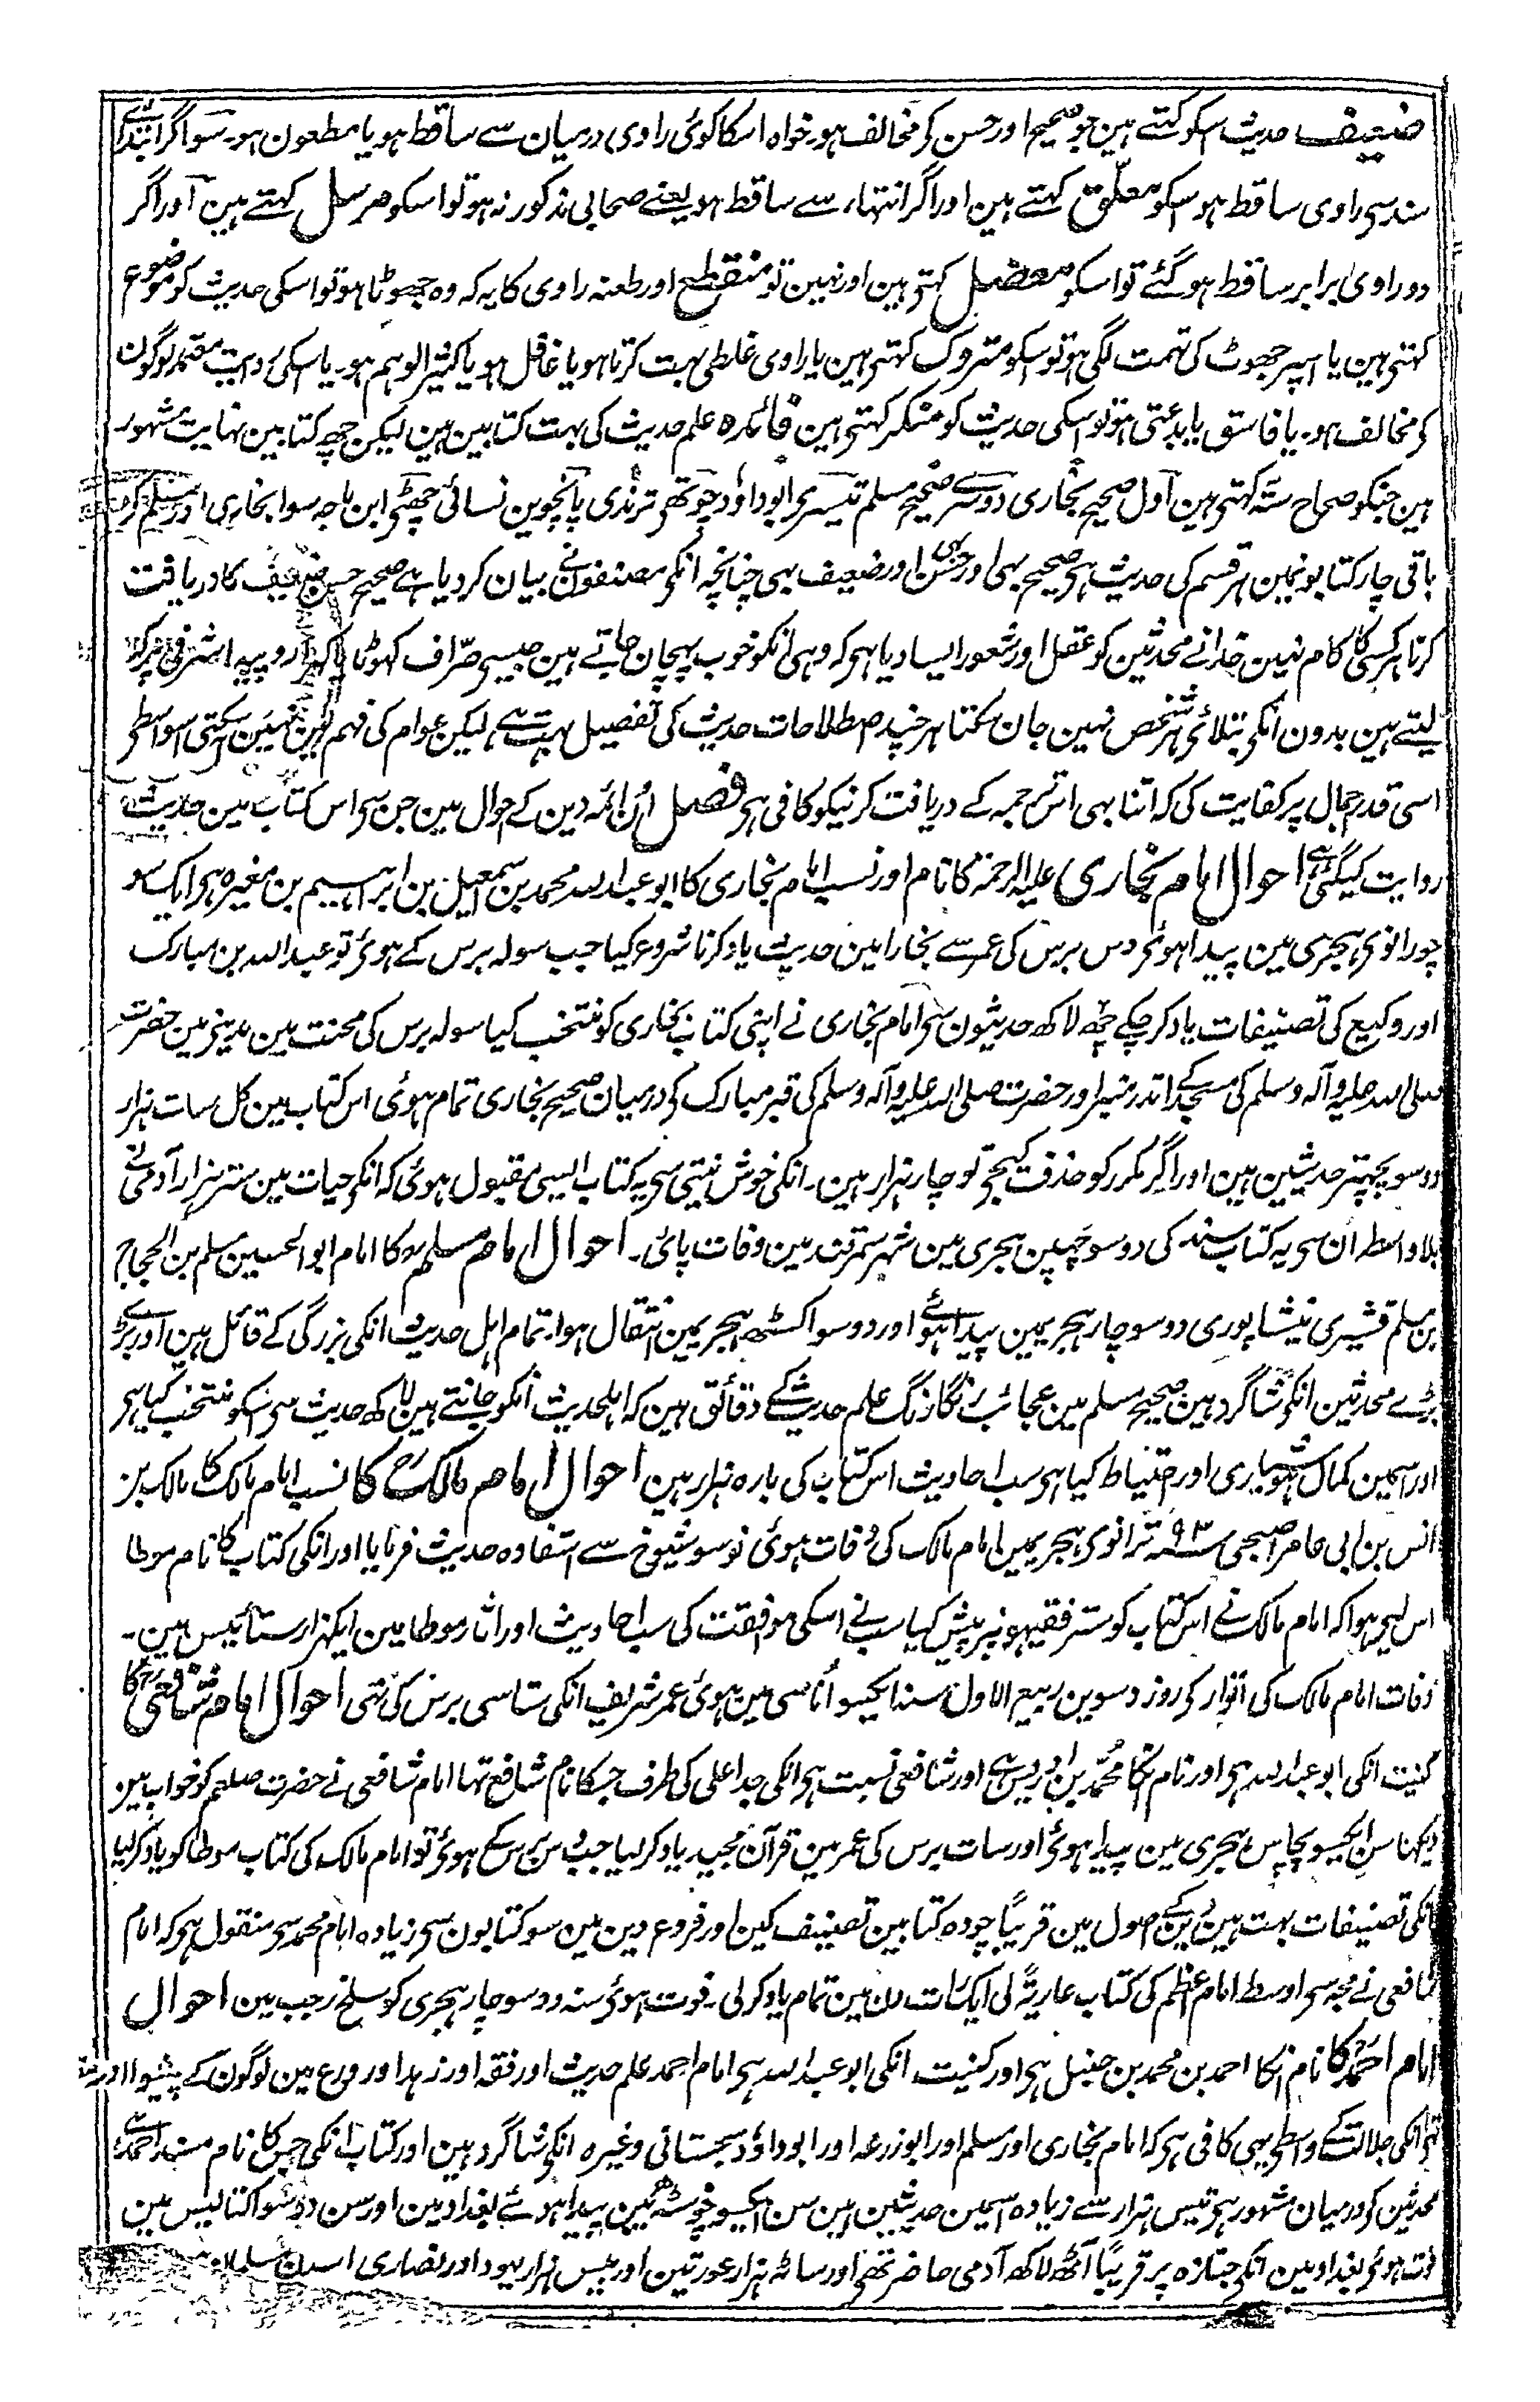 ضعیف حدیث اسکو کہتے ہین جو صحیح اور حسن کے مخالف ہو۔ خواہ اسکا کوئی راوی درمیان سے ساقط ہو یا مطعون ہو۔ سو اگر ابتدائے
سند سے راوی ساقط ہو اسکو معلّق کہتے ہین اور اگر انتہاء سے ساقط ہو یعنے صحابی مذکور نہ ہو تو اسکو مرسل کہتے ہین اور اگر
دو راوی برابر ساقط ہو گئے تو اسکو معضل کہتے ہین اور نہین تو منقطع اور طعنہ راوی کا یہ کہ وہ جھوٹا ہو تو اسکی حدیث کو موضوع
کہتے ہین یا اسپر جھوٹ کی تہمت لگی ہو تو اسکو متروک کہتے ہین یا راوی غلطی بہت کرتا ہو یا غافل ہو یا کثیر الوہم ہو۔ یا اسکی روایت معتمد لوگون
کے مخالف ہو۔ یا فاسق یا بدعتی ہو تو اسکی حدیث کو منکر کہتے ہین فائدہ علم حدیث کی بہت کتابین ہین لیکن چھ کتابین نہایت مشہور
ہین جنکو صحاح ستّہ کہتے ہین اول صحیح بخاری دوسرے صحیح مسلم تیسرے ابوداؤد چوتھے ترمذی پانچوین نسائی چھٹے ابن ماجہ سوا بخاری اور مسلم کے
باقی چار کتابونمین ہر قسم کی حدیث ہے صحیح بھی اور حسن بھی اور ضعیف بھی چنانچہ انکے مصنفون نے بیان کر دیا ہے صحیح حسن ضعیف کا دریافت
کرنا ہر کسی کا کام نہین خدا نے محدثین کو عقل اور شعور ایسا دیا ہے کہ وہی انکو خوب پہچان جاتے ہین جیسے صرّاف کھوٹا یا کھرا روپیہ اشرفی پرکھ
لیتے ہین بدون انکے بتلائے ہر شخص نہین جان سکتا ہر چند اصطلاحات حدیث کی تفصیل بہت ہے لیکن عوام کی فہم مین نہین آسکتی اسواسطے
اسی قدر اجمال پر کفایت کی کہ اتنا بھی اس ترجمہ کے دریافت کرنیکو کافی ہے فصل اُن ائمہ دین کے احوال مین جن سے اس کتاب مین حدیث
روایت کیگئی ہے احوال امام بخاری علیہ الرحمۃ کا نام اور نسب امام بخاری کا ابو عبد اللہ محمد بن اسمعیل بن ابراہیم بن مغیرہ ہے ایک سو
چورانوے ہجری مین پیدا ہوئے دس برس کی عمر سے بخارا مین حدیث یاد کرنا شروع کیا جب سولہ برس کے ہوئے تو عبد اللہ بن مبارک
اور وکیع کی تصنیفات یاد کر چکے چھ لاکھ حدیثون سے امام بخاری نے اپنی کتاب بخاری کو منتخب کیا سولہ برس کی محنت مین مدینے مین حضرت
صلی اللہ علیہ وآلہ وسلم کی مسجد کے اندر منبر اور حضرت صلی اللہ علیہ وآلہ وسلم کی قبر مبارک کے درمیان صحیح بخاری تمام ہوئی اس کتاب مین کل سات ہزار
دو سو پچھتر حدیثین ہین اور اگر مکرر کو حذف کیجے تو چار ہزار ہین۔ انکی خوش نیتی سے یہ کتاب ایسی مقبول ہوئی کہ انکی حیات مین ستر ہزار آدمی نے
بلا واسطہ اُن سے یہ کتاب سند کی دو سو چھپن ہجری مین شہر سمرقند مین وفات پائی۔ احوال امام مسلم کا امام ابو الحسین مسلم بن الحجاج
بن مسلم قشیری نیشاپوری دو سو چار ہجریمین پیدا ہوئے اور دو سو اکسٹھ ہجریمین انتقال ہوا۔ تمام اہل حدیث انکی بزرگی کے قائل ہین اور بڑے
بڑے محدثین انکے شاگرد ہین صحیح مسلم مین عجائب رنگا رنگ علم حدیث کے دقائق ہین کہ اہلحدیث انکو جانتے ہین لاکھ حدیث سے اسکو منتخب کیا ہے
اور اسمین کمال ہوشیاری اور احتیاط کیا ہے سب احادیث اس کتاب کی بارہ ہزار ہین احوال امام مالک کا نسب امام مالک کا مالک بن
انس بن ابی عامر اصبحی سنہ ۹۳ ترانوے ہجریمین امام مالک کی وفات ہوئی نو سو شیوخ سے استفادہ حدیث فرمایا اور انکی کتاب کا نام موطا
اس لیے ہوا کہ امام مالک نے اس کتاب کو ستر فقیہونپر پیش کیا سب نے اسکی موافقت کی سب احادیث اور اثار موطا مین ایکہزار ستائیس ہین۔
وفات امام مالک کی اتوار کے روز دسوین ربیع الاول سنہ ایکسو اُناسی مین ہوئی عمر شریف انکی ستاسی برس کی تھی احوال امام شافعی کا
کنیت انکی ابو عبد اللہ ہے اور نام انکا محمد بن ادریس ہے اور شافعی نسبت ہے انکی جد اعلی کی طرف جسکا نام شافع تھا امام شافعی نے حضرت صلعم کو خواب مین
دیکھا سن ایکسو پچاس ہجری مین پیدا ہوئے اور سات برس کی عمر مین قرآن مجید یاد کر لیا جب دس برس کے ہوئے تو امام مالک کی کتاب موطا کو یاد کر لیا
انکی تصنیفات بہت ہین دین کے اصول مین قریباً چودہ کتابین تصنیف کین اور فروع دین مین سو کتابون سے زیادہ امام محمد سے منقول ہے کہ امام
شافعی نے مجھ سے اوسط امام اعظم کی کتاب عاریۃً لی ایک رات دن مین تمام یاد کر لی۔ فوت ہوئے سنہ دو سو چار ہجری کو سلخ رجب مین احوال
امام احمد کا نام انکا احمد بن محمد بن حنبل ہے اور کنیت انکی ابو عبد اللہ ہے امام احمد علم حدیث اور فقہ اور زہد اور ورع مین لوگون کے پیشوا اور
تھے انکی جلالت کے واسطے یہی کافی ہے کہ امام بخاری اور مسلم اور ابوزرعہ اور ابوداؤد سجستانی وغیرہ انکے شاگرد ہین اور کتاب انکی جس کا نام مسند احمد ہے
محدثین کے درمیان مشہور ہے تیس ہزار سے زیادہ اسمین حدیثین ہین سن ایکسو چونسٹھ مین پیدا ہوئے بغداد مین اور سن دو سو اکتالیس مین
فوت ہوئے بغداد مین انکے جنازہ پر قریباً آٹھ لاکھ آدمی حاضر تھے اور ساٹھ ہزار عورتین اور بیس ہزار یہود اور نصاری اسدن مسلمان